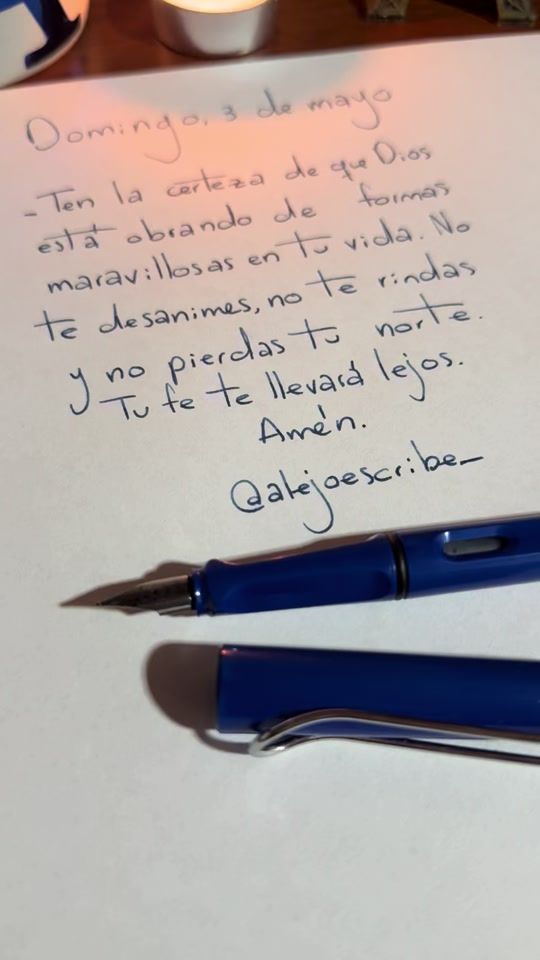 Domingo, 3 de mayo
- Ten la certeza de que Dios
está obrando de formas
maravillosas en tu vida. No
te desanimes, no te rindas
y no pierdas tu norte.
Tu fe te llevará lejos.
Amén.
@alejoescribe_